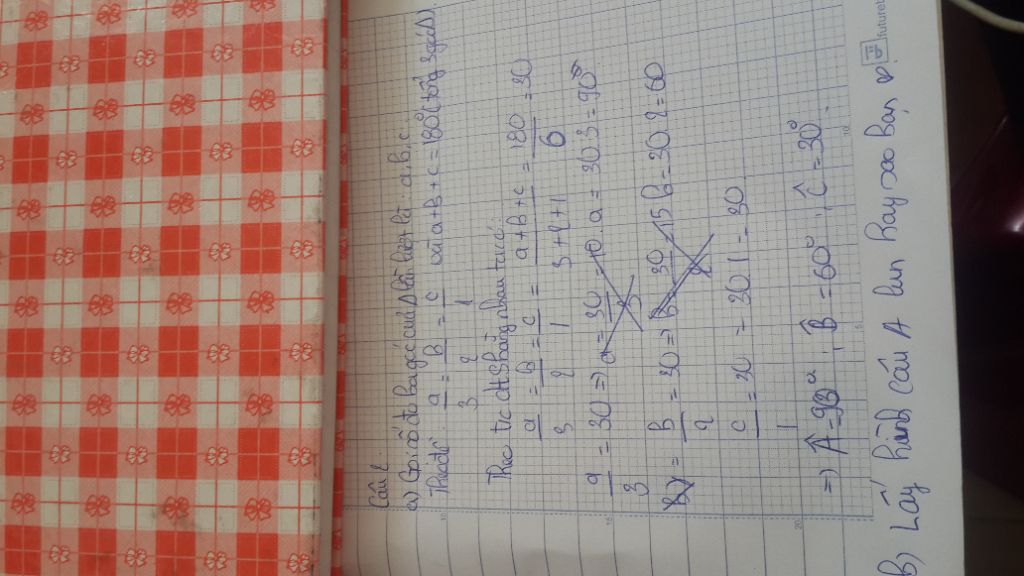 Câu 2
a) Gọi số đo ba góc của Δ lần lượt là a, b, c
Theo đề: a/3 = b/2 = c/1 và a+b+c = 180° (tổng 3 góc Δ)
Theo t/c dãy tỉ số bằng nhau ta có:
a/3 = b/2 = c/1 = a+b+c/3+2+1 = 180/6 = 30
a/3 = 30 => a = 30.3 = 90°
b/2 = 30 => b = 30.2 = 60
c/1 = 30 = 30.1 = 30
=> Â = 90°, B̂ = 60°, Ĉ = 30°
B) Lấy hình câu A lun bay sao bạn